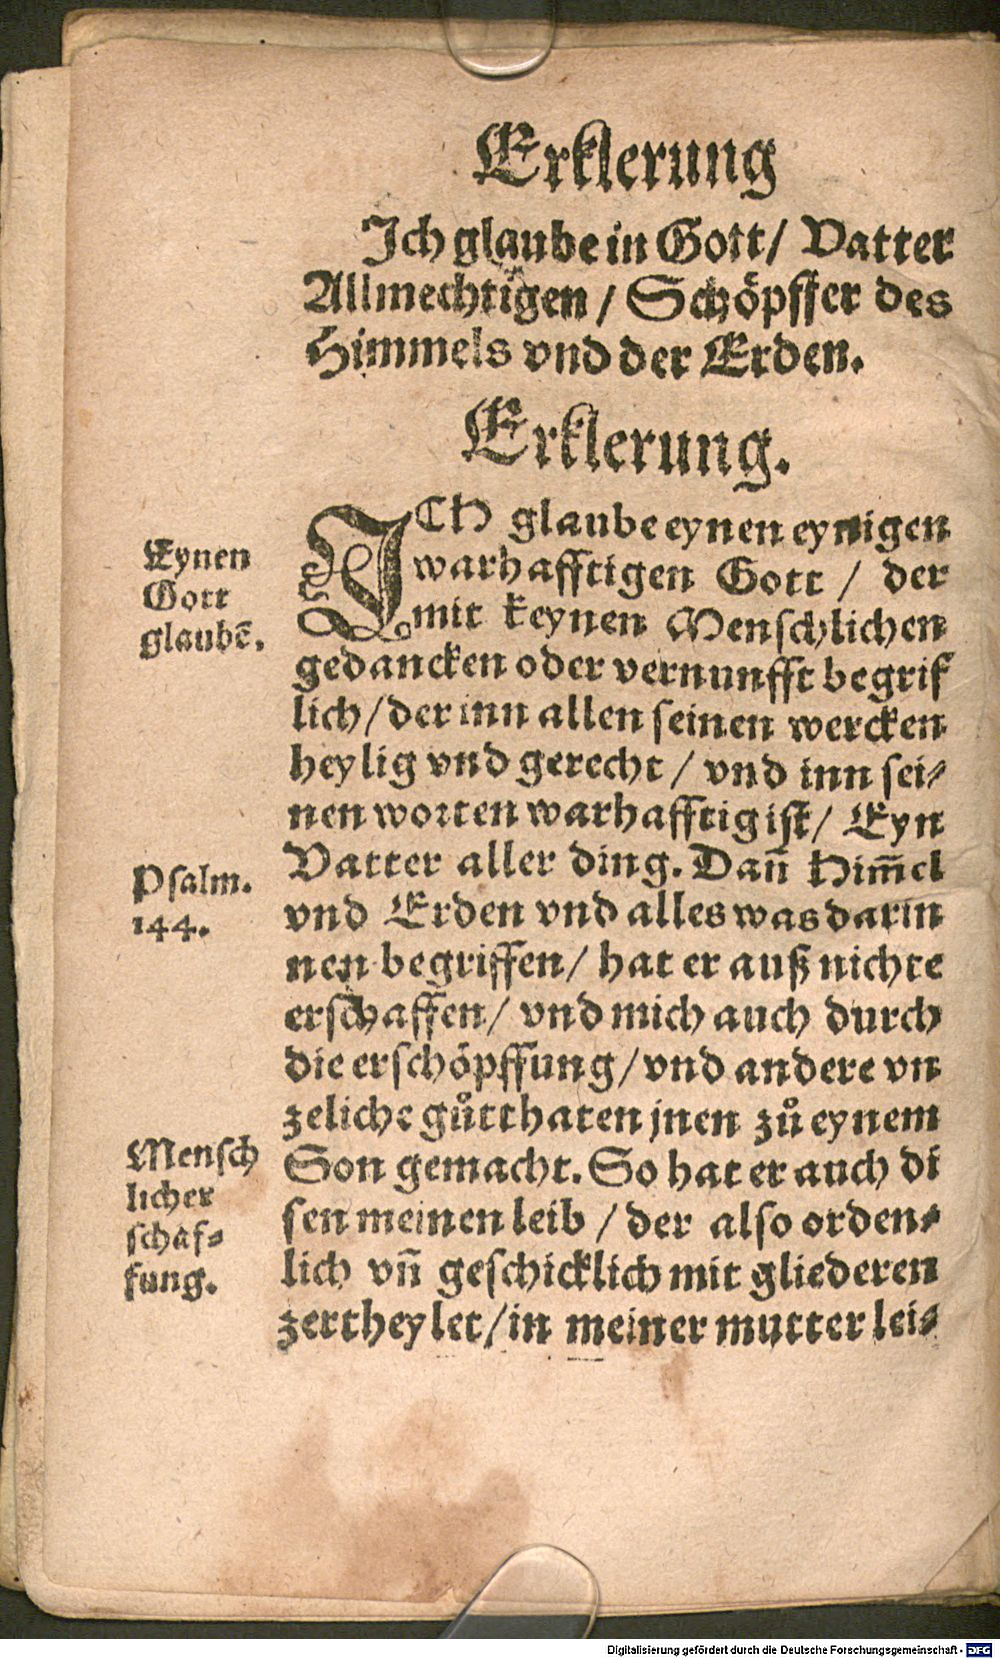 Erklerung
Ich glaube in Gott/ Vatter
Allmechtigen / Schöpffer des
Himmels vnd der Erden.
Erklerung.
Eynen
Gott
glaubē.
ICH glaube eynen eynigen
warhafftigen Gott / der
mit keynen Menschlichen
gedancken oder vernunfft begrif
lich/der inn allen seinen wercken
heylig vnd gerecht / vnd inn sei⸗
nen worten warhafftig ist/ Eyn
Psalm.
144.
Vatter aller ding. Dañ Him̄el
vnd Erden vnd alles was darin
nen begriffen/ hat er auß nichte
erschaffen/ vnd mich auch durch
die erschöpffung/vnd andere vn
zeliche gůtthaten jnen zů eynem
Mensch
licher
schaf⸗
fung.
Son gemacht. So hat er auch di
sen meinen leib / der also orden⸗
lich vñ geschicklich mit gliederen
zertheylet/in meiner mutter lei⸗
Digitalisierung gefördert durch die Deutsche Forschungsgemeinschaft - DFG